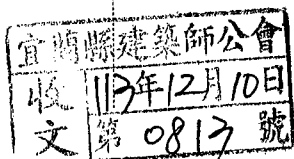 宜蘭縣建築師公會
收文
113年12月10日
第 0813 號